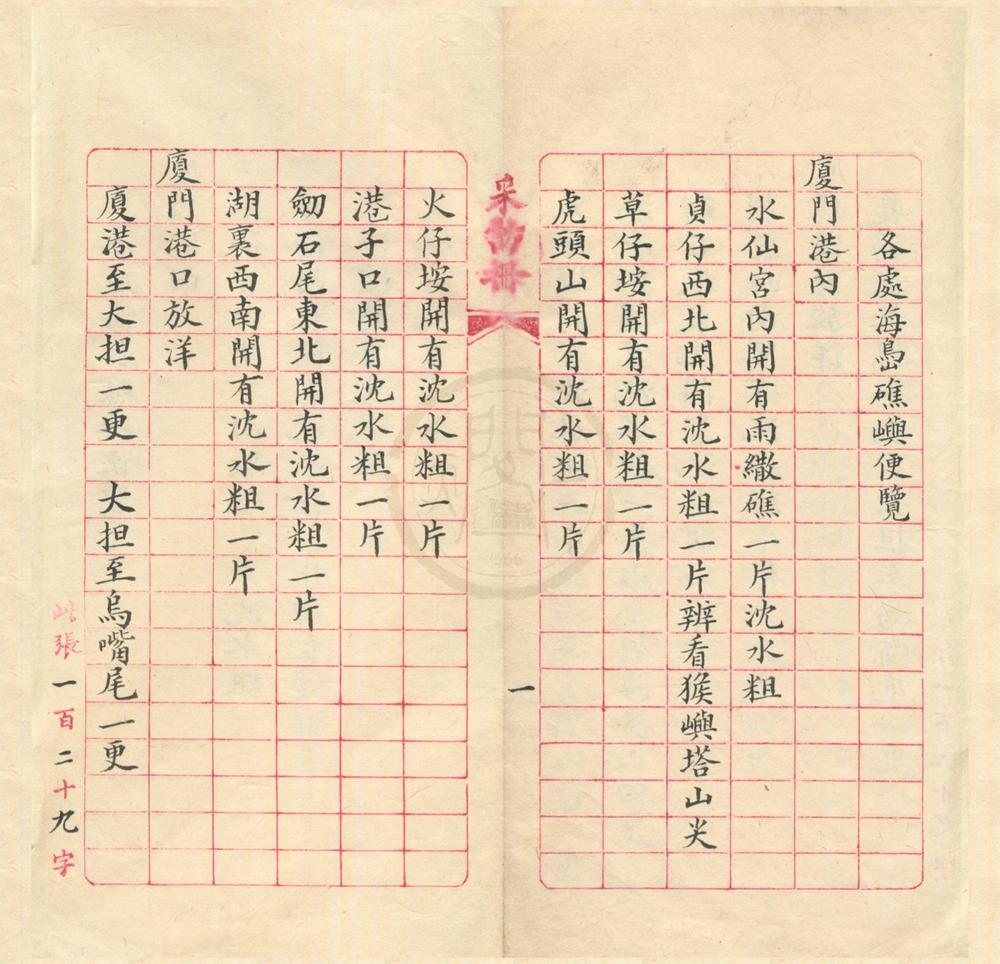 各處海島礁嶼便覽
廈門港內
水仙宮內開有雨繖礁一片沈水粗
貞仔西北開有沈水粗一片辨看猴嶼塔山尖
草仔垵開有沈水粗一片
虎頭山開有沈水粗一片
采訪冊
一
火仔垵開有沈水粗一片
港子口開有沈水粗一片
劒石尾東北開有沈水粗一片
湖裏西南開有沈水粗一片
廈門港口放洋
廈港至大担一更 大担至烏嘴尾一更
此張一百二十九字